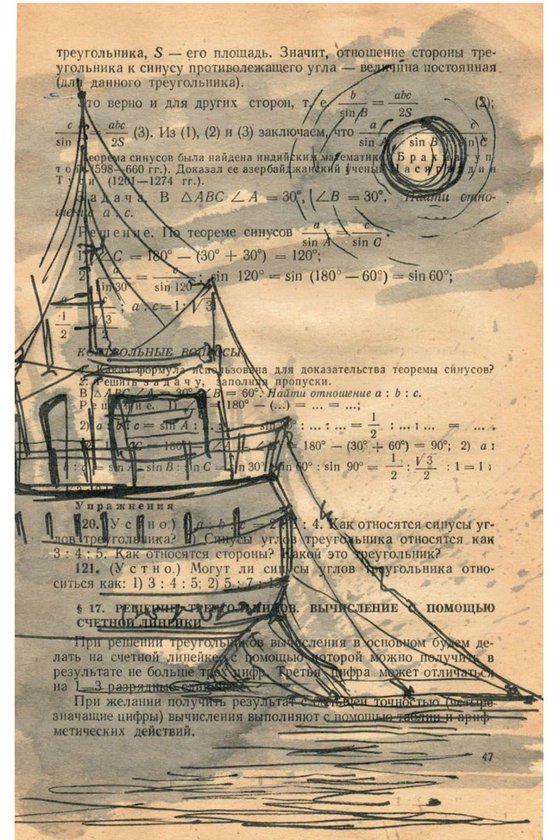 треугольника, S — его площадь. Значит, отношение стороны тре-
угольника к синусу противолежащего угла — величина постоянная
(для данного треугольника).
это верно и для других сторон, т. е. b / sin B = abc / 2S (2);
c / sin C = abc / 2S (3). Из (1), (2) и (3) заключаем, что a / sin A = b / sin B = c / sin C
Теорема синусов была найдена индийским математиком Брахмагуп-
той (598—660 гг.). Доказал ее азербайджанский ученый Насирэддин
Туси (1201—1274 гг.).
Задача. В △ABC ∠A = 30°, ∠B = 30°. Найти отно-
шение a : c.
Решение. По теореме синусов a / sin A = c / sin C.
1) ∠C = 180° — (30° + 30°) = 120°;
2) a / sin 30° = c / sin 120°; sin 120° = sin (180° — 60°) = sin 60°;
a / 1/2 = c / √3/2; a : c = 1 : √3
КОНТРОЛЬНЫЕ ВОПРОСЫ
1. Какая формула использована для доказательства теоремы синусов?
2. Решить задачу, заполнив пропуски.
В △ABC ∠A = 30°, ∠B = 60°. Найти отношение a : b : c.
Решение. 1) = 180° — (...) = ... = ...;
2) a : b : c = sin A : ... : ... = ... : ... : ... = 1/2 : ... : ... = ...
= 180° — (30° + 60°) = 90°; 2) a :
: b : c = sin A : sin B : sin C = sin 30° : sin 60° : sin 90° = 1/2 : √3/2 : 1 = 1 :
Упражнения
120. (Устно.) a : b : c = 2 : : 4. Как относятся синусы уг-
лов треугольника? Синусы углов треугольника относятся как
3 : 4 : 5. Как относятся стороны? Какой это треугольник?
121. (Устно.) Могут ли синусы углов треугольника отно-
ситься как: 1) 3 : 4 : 5; 2) 5 : 7 :
§ 17. РЕШЕНИЕ ТРЕУГОЛЬНИКОВ. ВЫЧИСЛЕНИЕ С ПОМОЩЬЮ
СЧЕТНОЙ ЛИНЕЙКИ
При решении треугольников вычисления в основном будем де-
лать на счетной линейке, с помощью которой можно получить в
результате не больше трех цифр. Третья цифра может отличаться
на 1—3 разрядные
При желании получить результат с большей точностью (четыре
значащие цифры) вычисления выполняют с помощью таблиц и ариф-
метических действий.
47